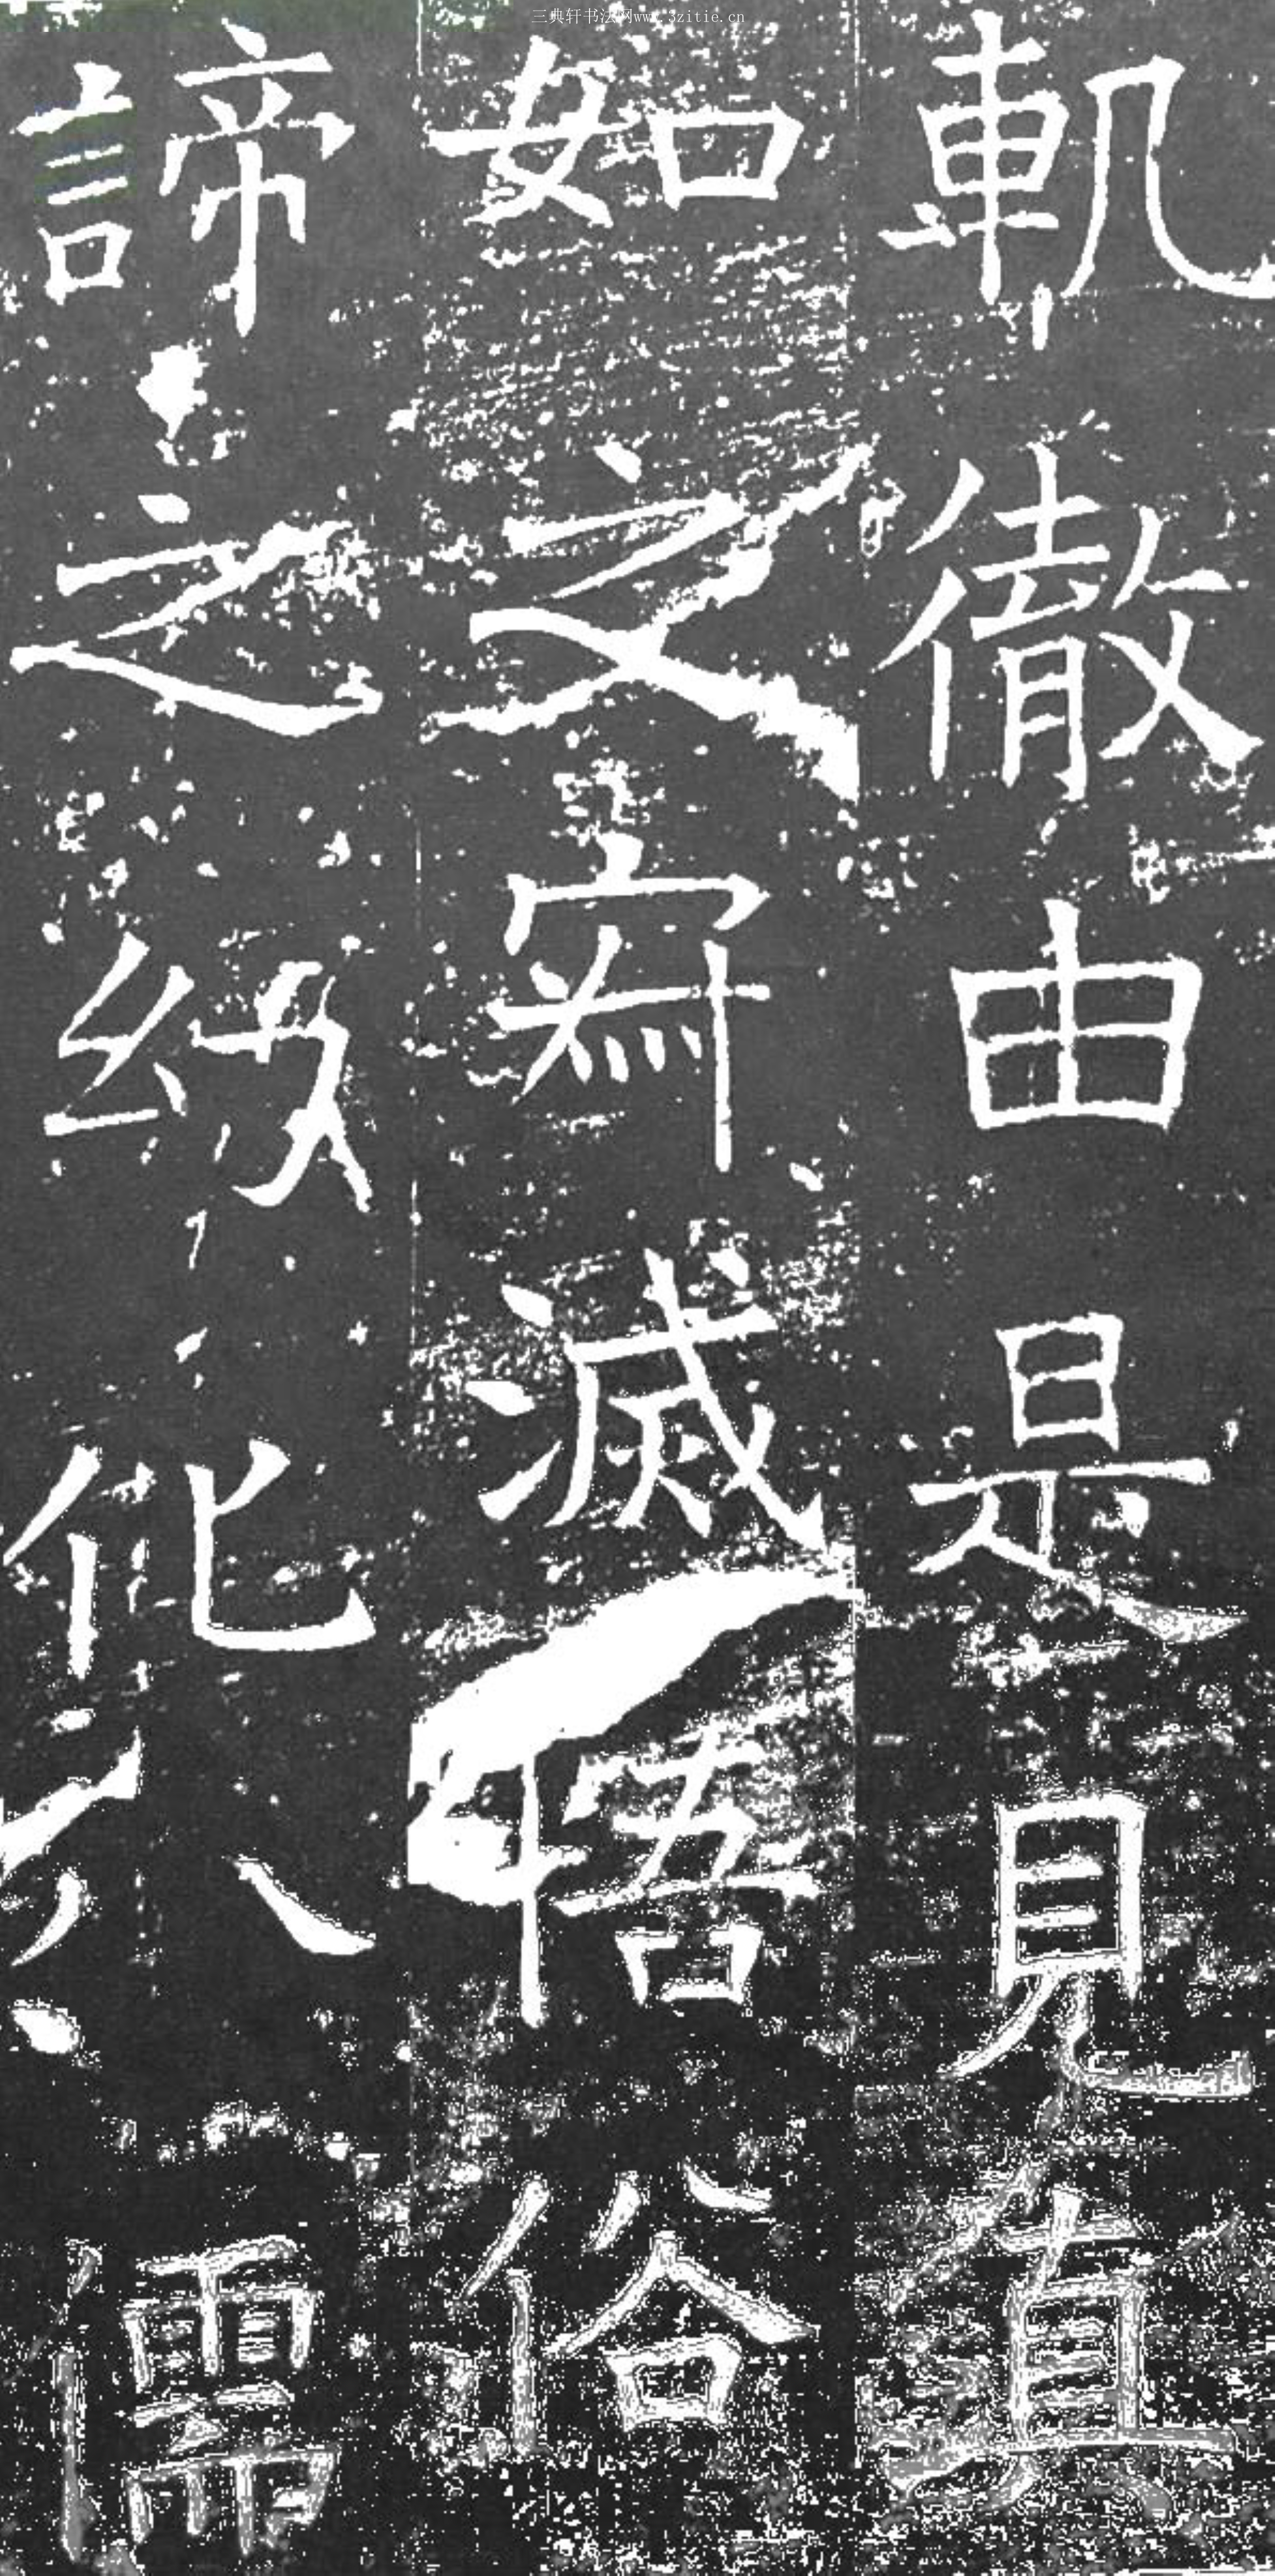 三典轩书法网www.3zitie.cn
軌徹由是見真
如之寂滅悟俗
諦之紛化入儒